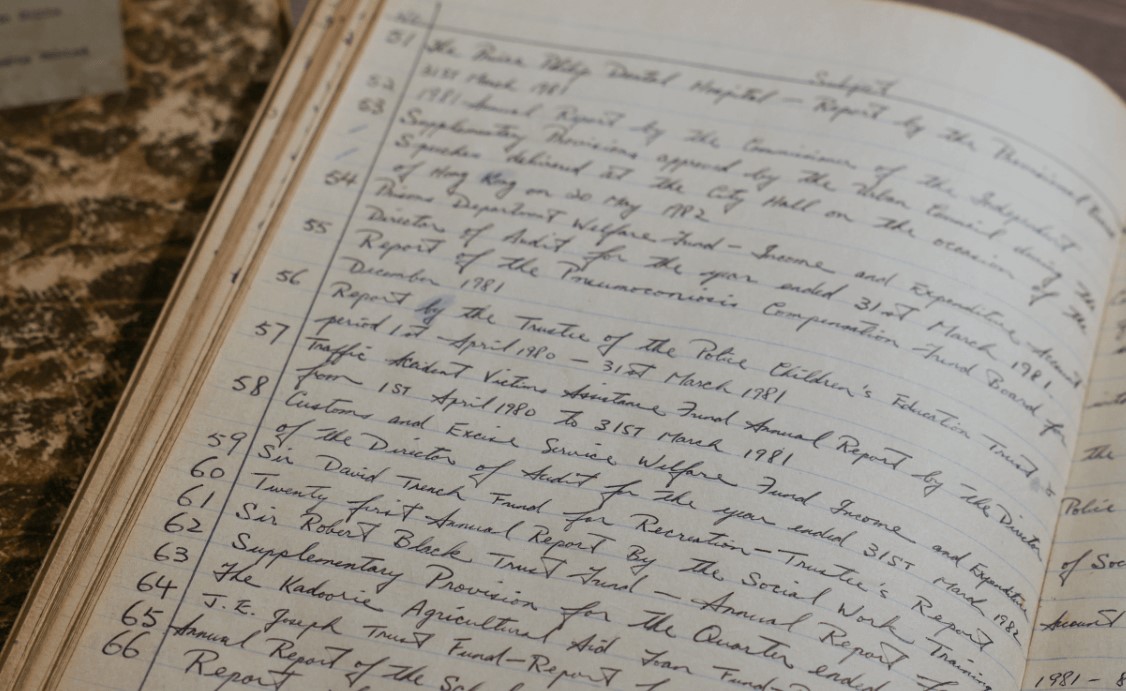 No. Subject
51 The Prince Philip Dental Hospital – Report by the Provisional
31ST March 1981
52 1981 Annual Report by the Commissioner of the Independent
53 Supplementary Provisions approved by the Urban Council during the
Speeches delivered at the City Hall on the occasion of the
of Hong Kong on 20 May 1982
54 Prisons Department Welfare Fund – Income and Expenditure Account
Director of Audit for the year ended 31st March 1981
55 Report of the Pneumoconiosis Compensation Fund Board for
December 1981
56 Report by the Trustee of the Police Children's Education Trust
period 1st April 1980 – 31st March 1981
57 Traffic Accident Victims Assistance Fund Annual Report by the Director
from 1ST April 1980 to 31ST March 1981
58 Customs and Excise Service Welfare Fund Income and Expenditure
of the Director of Audit for the year ended 31ST March 1982
59 Sir David Trench Fund for Recreation – Trustee's Report
60 Twenty first Annual Report By the Social Work Training
61 Sir Robert Black Trust Fund – Annual Report
62 Supplementary Provision for the Quarter ended
63 The Kadoorie Agricultural Aid Loan Fund –
64 J.E. Joseph Trust Fund – Report
65 Annual Report of the
66 Report
the
Police
of Soc
Account
1981 – 8